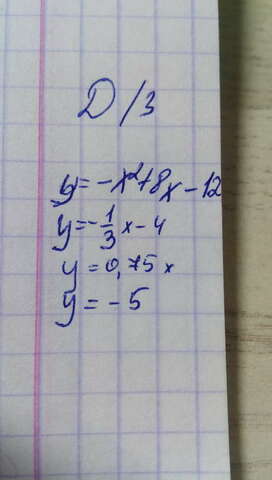 Д/з
y=-x²+8x-12
y=-1/3x-4
y=0,75x
y=-5